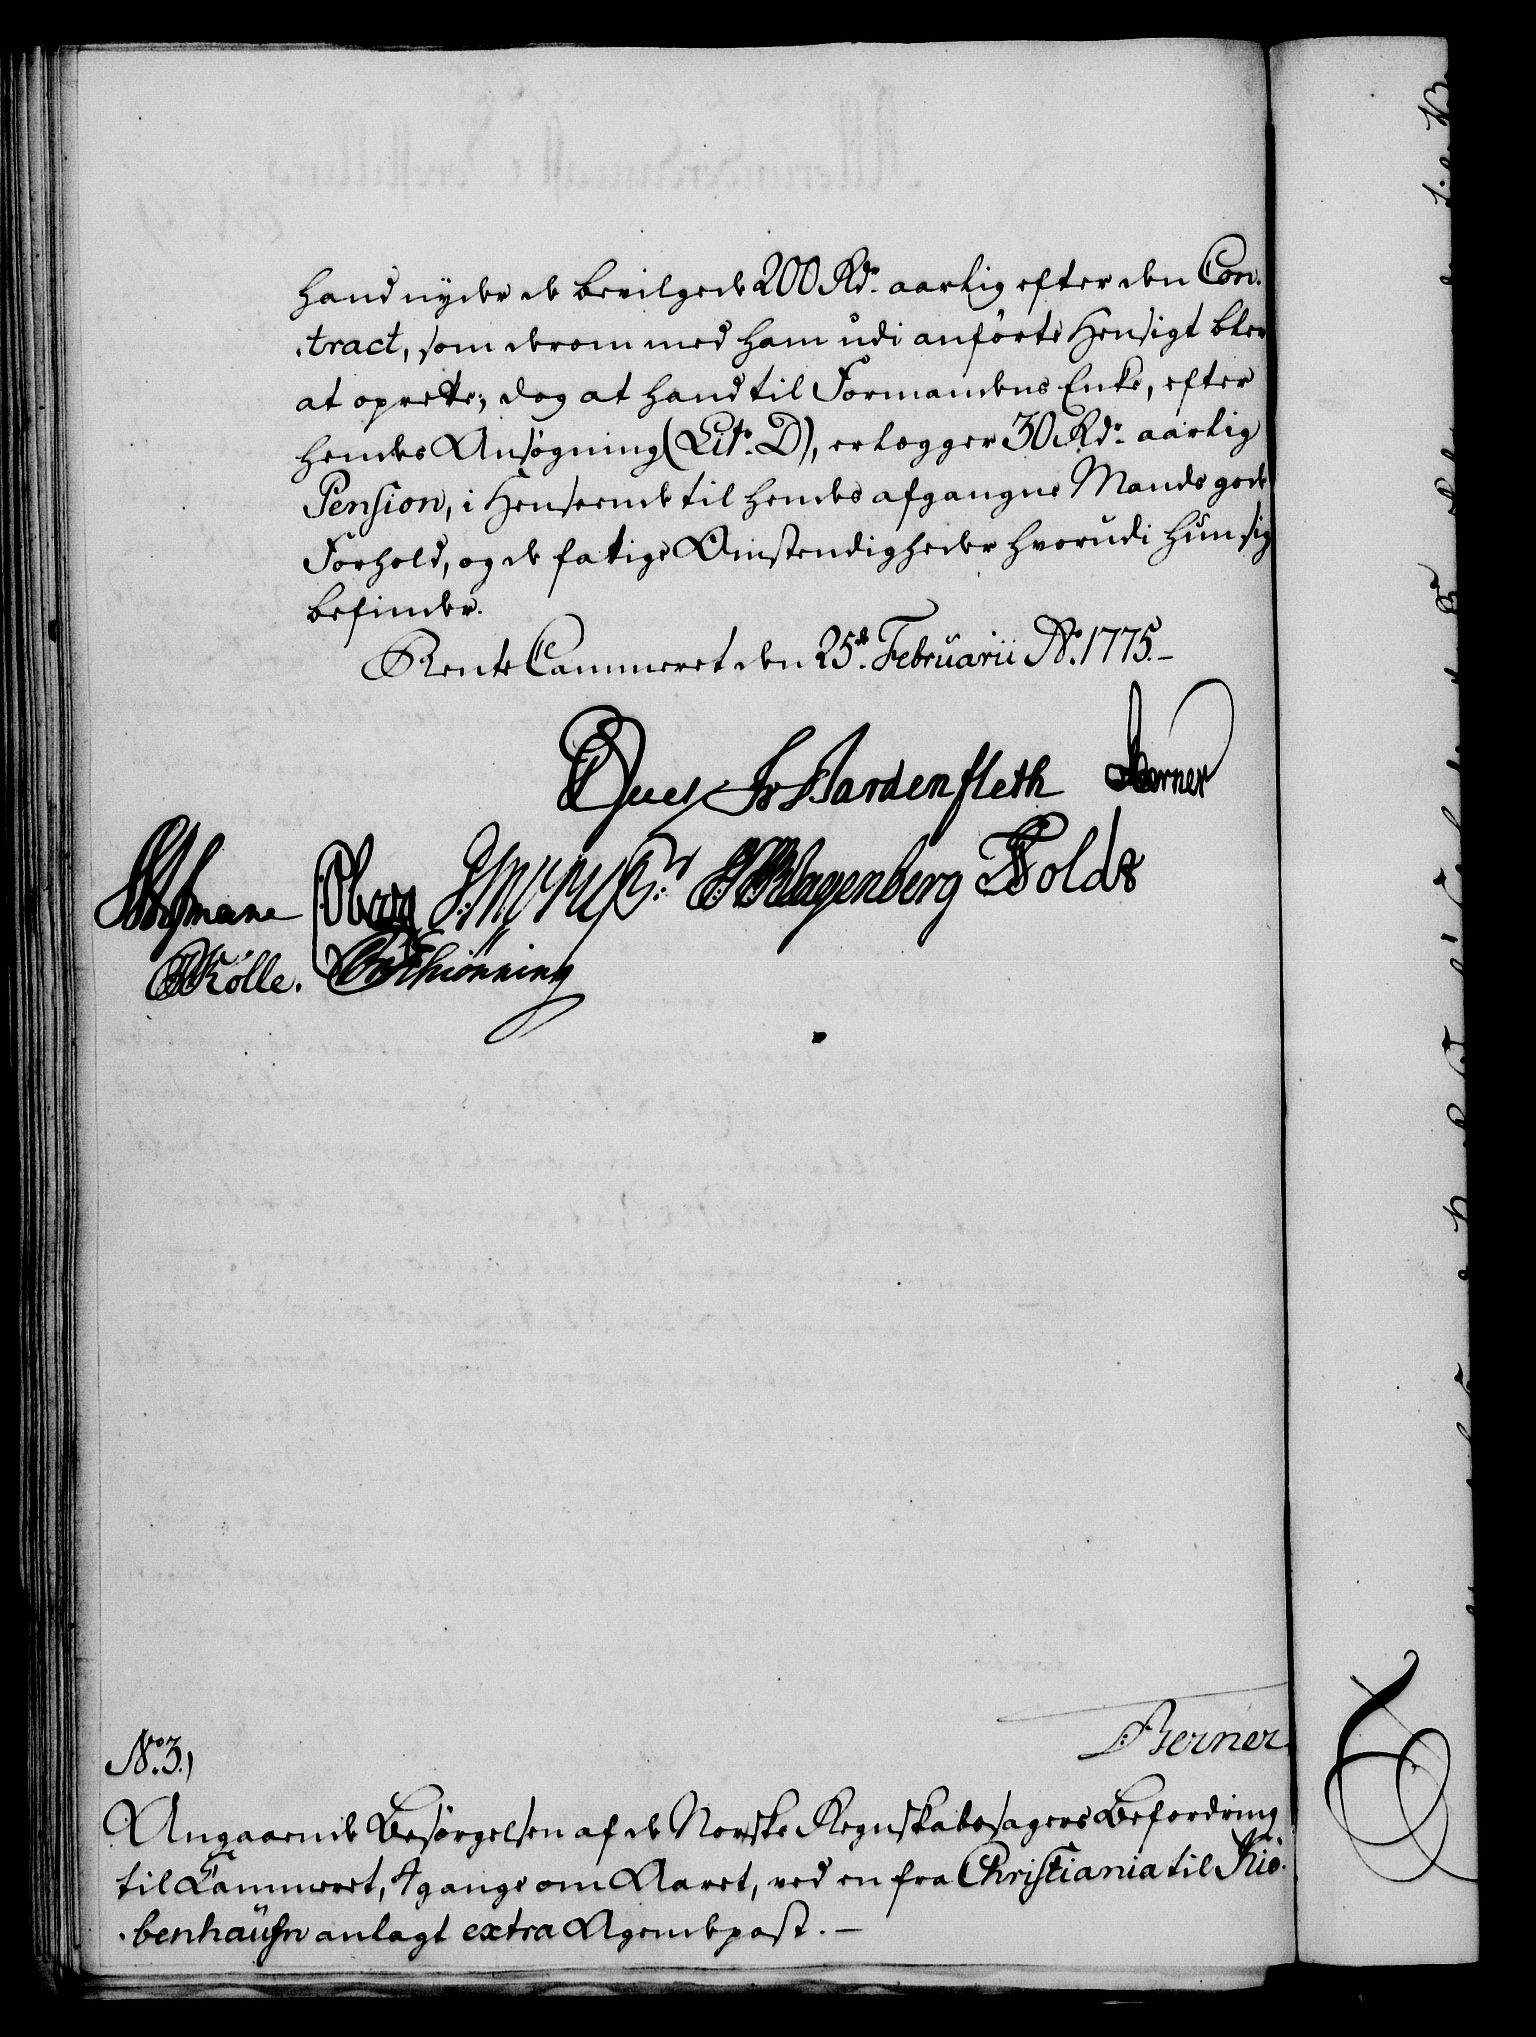 hand nyder de bevilgede 200 Rdr. aarlig efter den Con-
tract, som derom med ham udi anførte Hensigt bler
at oprette; dog at hand til Formandens Enke, efter
hendes Ansøgning (Litr. D), erlægger 30 Rdr. aarlig
Pension, i Henseende til hendes afgangne Mands gode
Forhold, og de fatige Omstendigheder hvorudi hun sig
befinder.
Rente Cammeret den 25de Februarii Ao. 1775.
Juel Fr Bardenfleth Berner
Oberg Klagenberg Holdt
Kølle. Schiønning
Berner
No. 3.)
Angaaende Besørgelsen af de Norske Regnskabssagers Befordring
til Cammeret, 4 gange om Aaret, ved en fra Christiania til Kiø-
benhaufn anlagt extra Agendepost. —